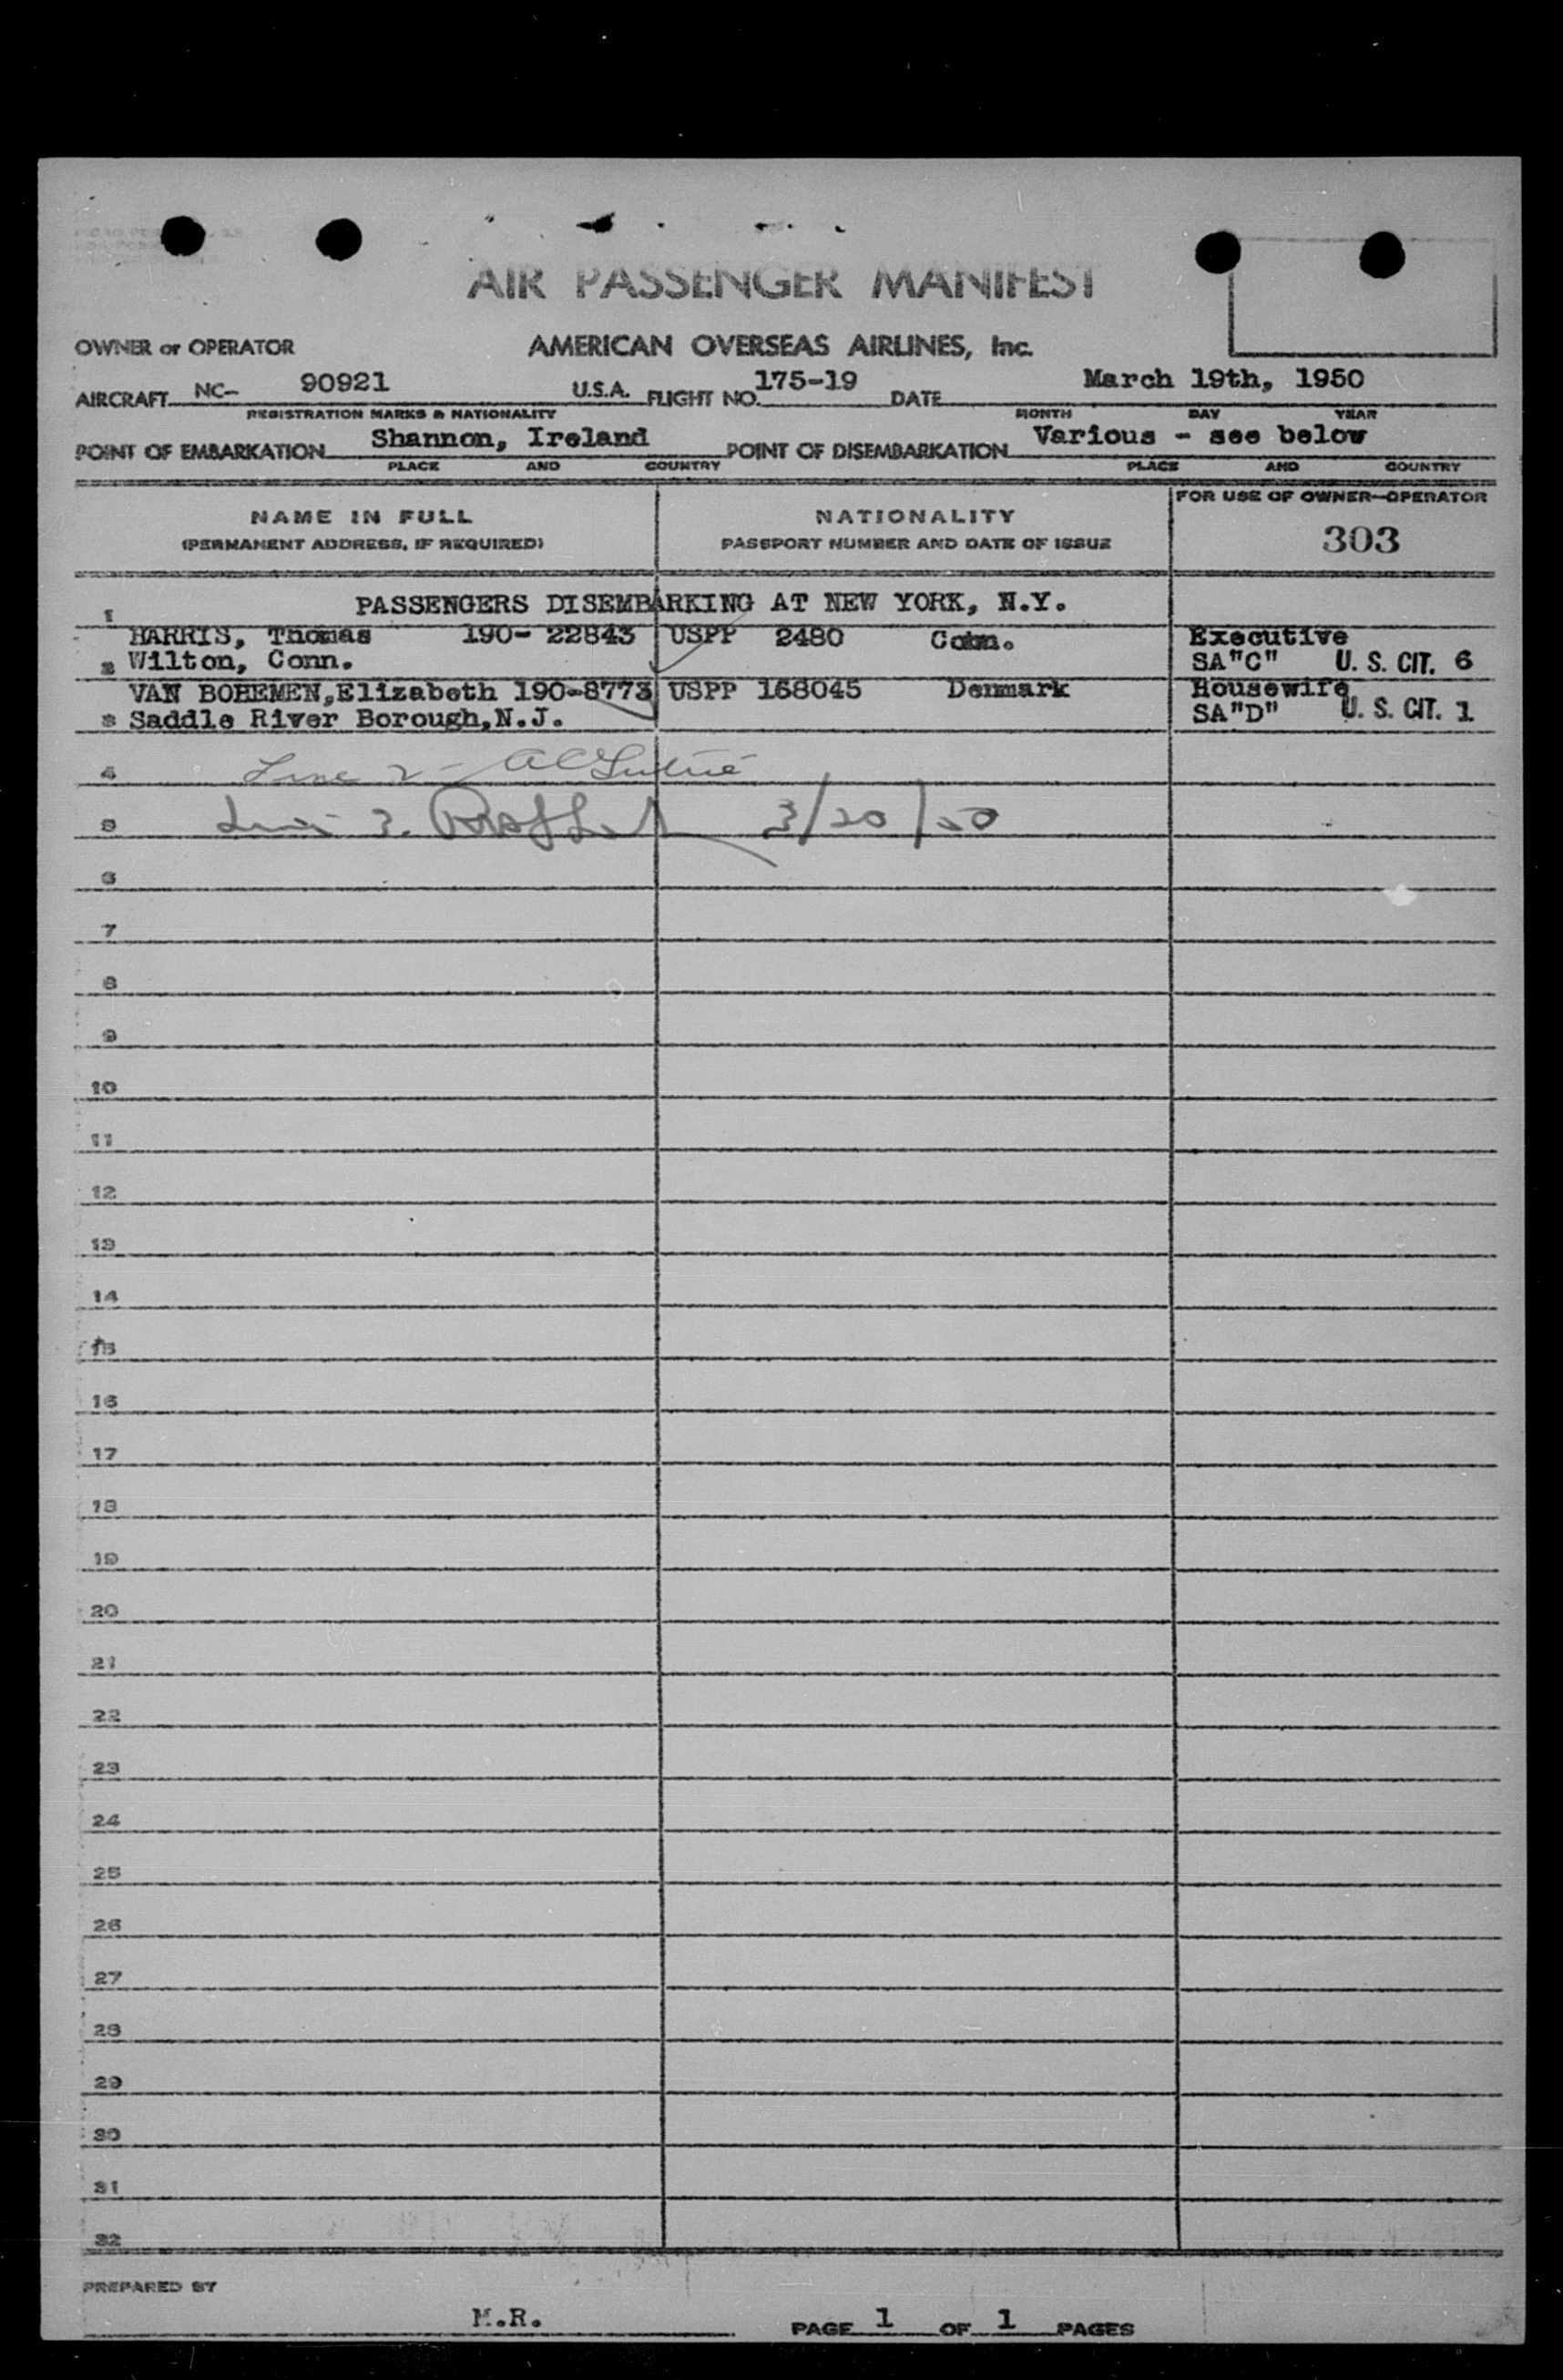 AIR PASSENGER MANIFEST
OWNER or OPERATOR AMERICAN OVERSEAS AIRLINES, Inc.
AIRCRAFT NC- 90921 U.S.A. FLIGHT NO. 175-19 DATE March 19th, 1950
REGISTRATION MARKS & NATIONALITY MONTH DAY YEAR
POINT OF EMBARKATION Shannon, Ireland POINT OF DISEMBARKATION Various - see below
PLACE AND COUNTRY PLACE AND COUNTRY
NAME IN FULL NATIONALITY FOR USE OF OWNER-OPERATOR
(PERMANENT ADDRESS, IF REQUIRED) PASSPORT NUMBER AND DATE OF ISSUE 303
1 PASSENGERS DISEMBARKING AT NEW YORK, N.Y.
HARRIS, Thomas 190- 22843 USPP 2480 Conn. Executive
2 Wilton, Conn. SA"C" U. S. CIT. 6
VAN BOHEMEN,Elizabeth 190-8773 USPP 168045 Denmark Housewife
3 Saddle River Borough,N.J. SA"D" U. S. CIT. 1
4 Line 2 -
5 3. 3/20/50
6
7
8
9
10
11
12
13
14
15
16
17
18
19
20
21
22
23
24
25
26
27
28
29
30
31
32
PREPARED BY
M.R. PAGE 1 OF 1 PAGES